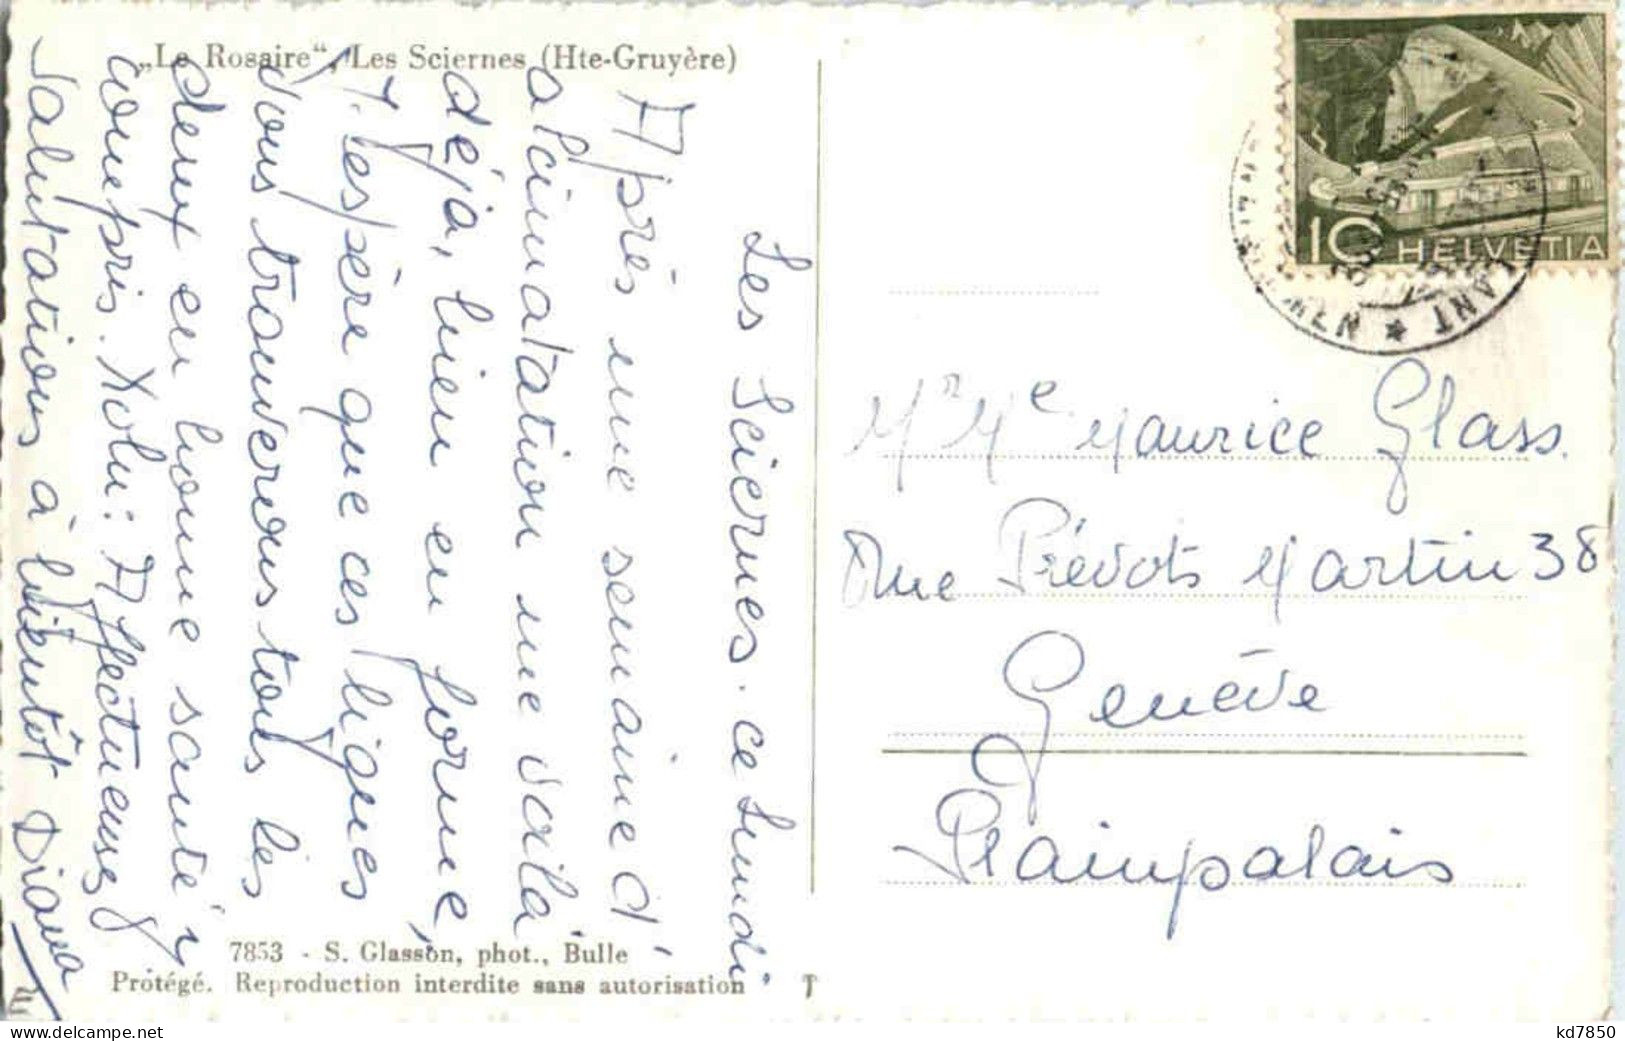 „Le Rosaire“, Les Sciernes (Hte-Gruyère)
Les Sciernes. ce Lundi
Après une semaine d'
alcimatation me voilà
déjà, bien en forme,
J'espère que ces lignes
vous trouverons tous les
deux en bonne santé
compris. Affectueuses
Salutations à bientôt Diana
7853 - S. Glasson, phot., Bulle
Protégé. Reproduction interdite sans autorisation
10 HELVETIA
Mr Me Maurice Glass.
Rue Prévots Martin 38
Genève
Plainpalais
kd7850